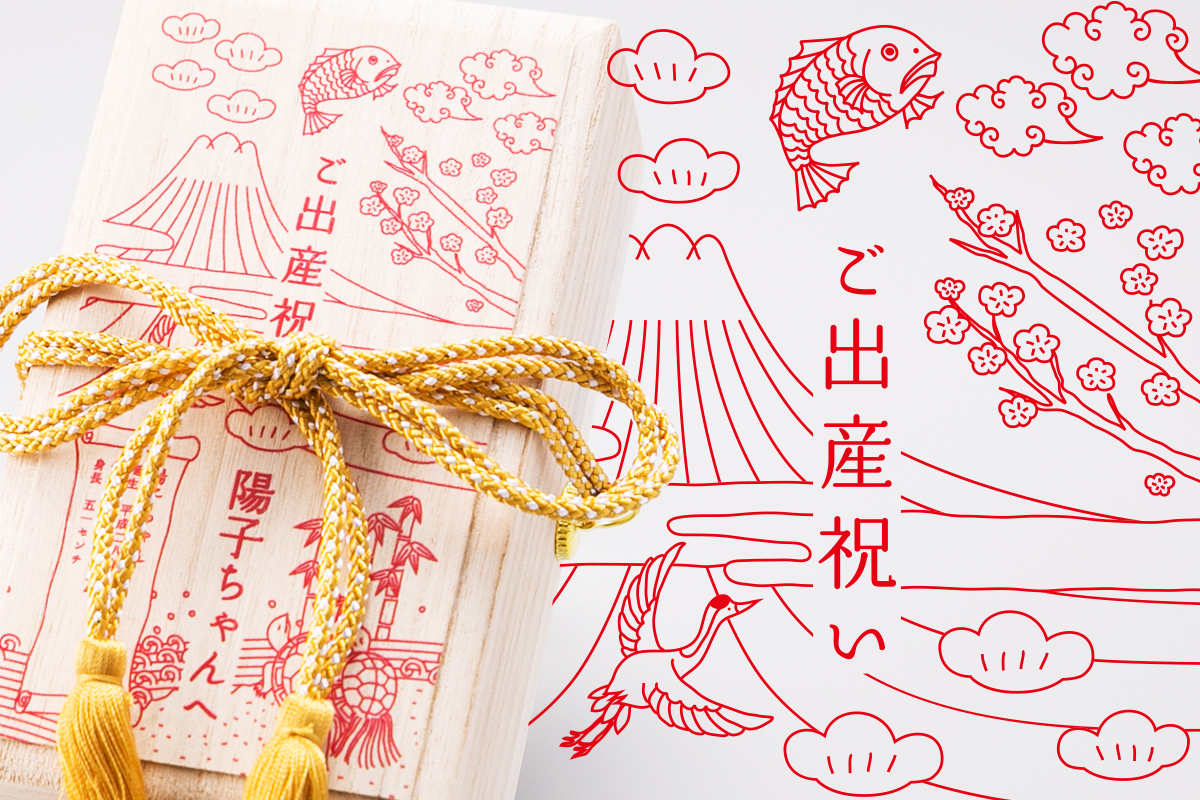 ご出産祝
陽子ちゃんへ
生 平成二
身長 五一センチ
ご出産祝い